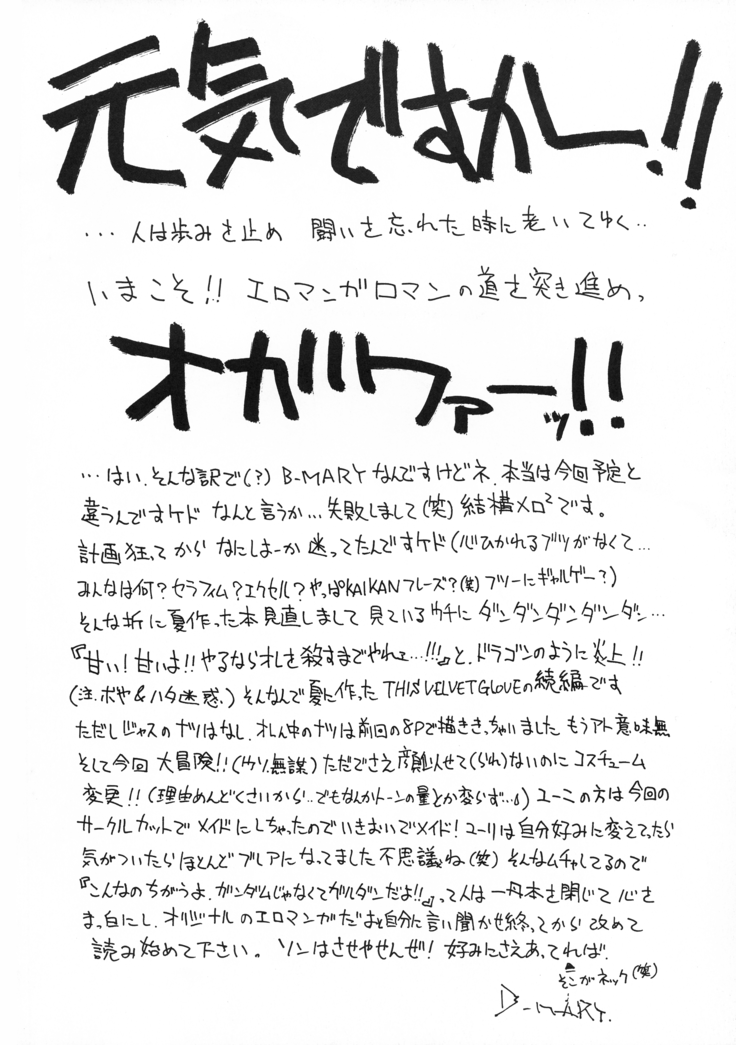 元気ですかー!!
…人は歩みを止め 闘いを忘れた時に老いてゆく‥
いまこそ!! エロマンガロマンの道を突き進めっ
オガワァーッ!!
…はい、そんな訳で(?) B-MARYなんですけどネ、本当は今回予定と
違うんですケド なんと言うか…失敗しまして(笑)結構メロ²です。
計画狂ってから なにしよーか 迷ってたんですケド(心ひかれるブツがなくて…
みんなは何?セラフィム?エクセル?やっぱKAIKANフレーズ?(笑)フツーにギャルゲー?)
そんな折に夏作った本見直しまして 見ているウチに ダンダンダンダンダン…
『甘い!甘いよ!!やるならオレを殺すまでやれェ…!!!』と、ドラゴンのように炎上!!
(注.ボヤ&ハタ迷惑、) そんなんで夏に作った THIS VELVET GLOVEの続編です
ただしジャスのナツはなし、オレん中のナツは前回の8Pで描ききっちゃいました もうアト意味無
そして今回 大冒険!!(ウソ、無謀)ただでさえ顔似せて(られ)ないのに コスチューム
変更!!(理由めんどくさいから‥でもなんかトーンの量とか変らず…) ユーこの方は今回の
サークルカットで メイドにしちゃったのでいきおいでメイド!ユーリは自分好みに変えてったら
気がついたらほとんどブレアになってました 不思議ね(笑) そんなムチャしてるので
『こんなのちがうよ、ガンダムじゃなくてガルダンだよ!!』って人は一旦本を閉じて 心を
まっ白にし、オリジナルのエロマンガだぁと自分に言い聞かせ終ってから 改めて
読み始めて下さい。 ソンはさせやせんぜ! 好みにさえあってれば、
そこがネック(笑)
B-MARY.